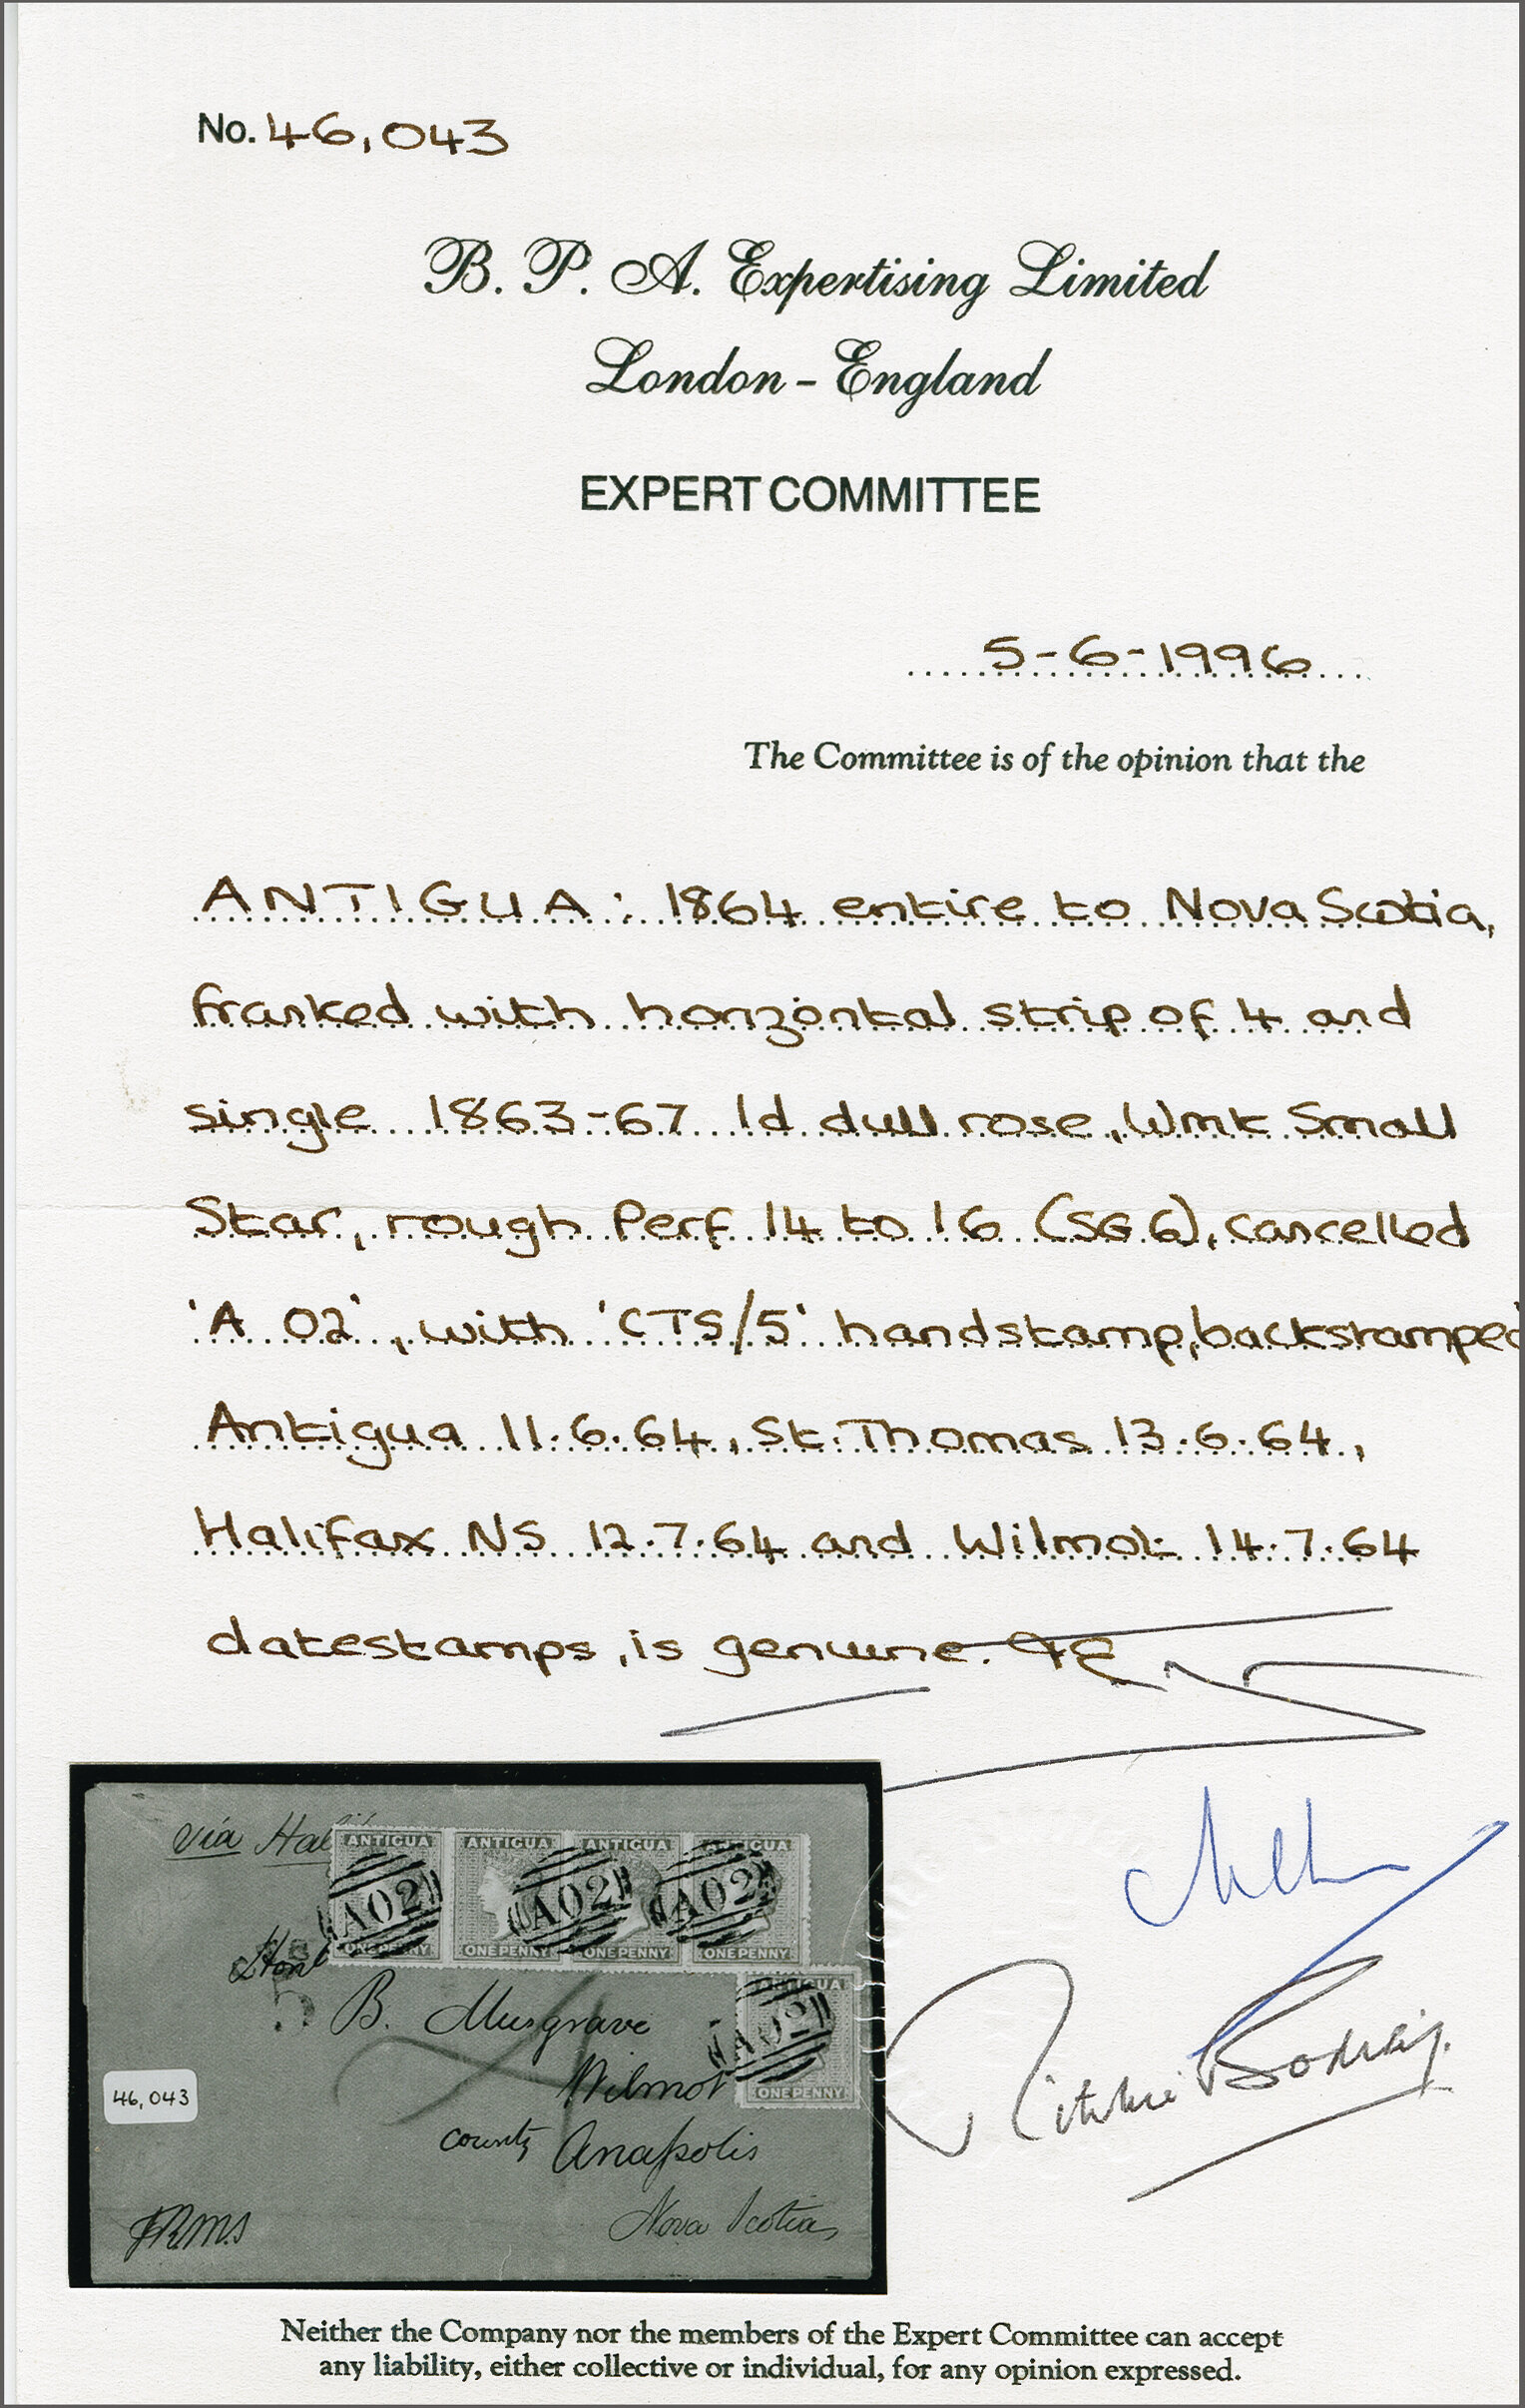 No. 46,043
B. P. A. Expertising Limited
London - England
EXPERT COMMITTEE
5-6-1996
The Committee is of the opinion that the
ANTIGUA: 1864 entire to Nova Scotia,
franked with horizontal strip of 4 and
single 1863-67 1d dull rose, Wmk Small
Star, rough Perf 14 to 16 (SG 6), cancelled
'A 02', with 'CTS/5' handstamp, backstamped
Antigua 11.6.64, St. Thomas 13.6.64,
Halifax NS 12.7.64 and Wilmot 14.7.64
datestamps, is genuine.
via Hal
ANTIGUA ANTIGUA ANTIGUA ANTIGUA
A02 A02 A02
ONE PENNY ONE PENNY ONE PENNY ONE PENNY
Honl
5
B. Musgrave
ANTIGUA
A02
ONE PENNY
Wilmot
46,043
county Anapolis
Nova Scotia
Neither the Company nor the members of the Expert Committee can accept
any liability, either collective or individual, for any opinion expressed.